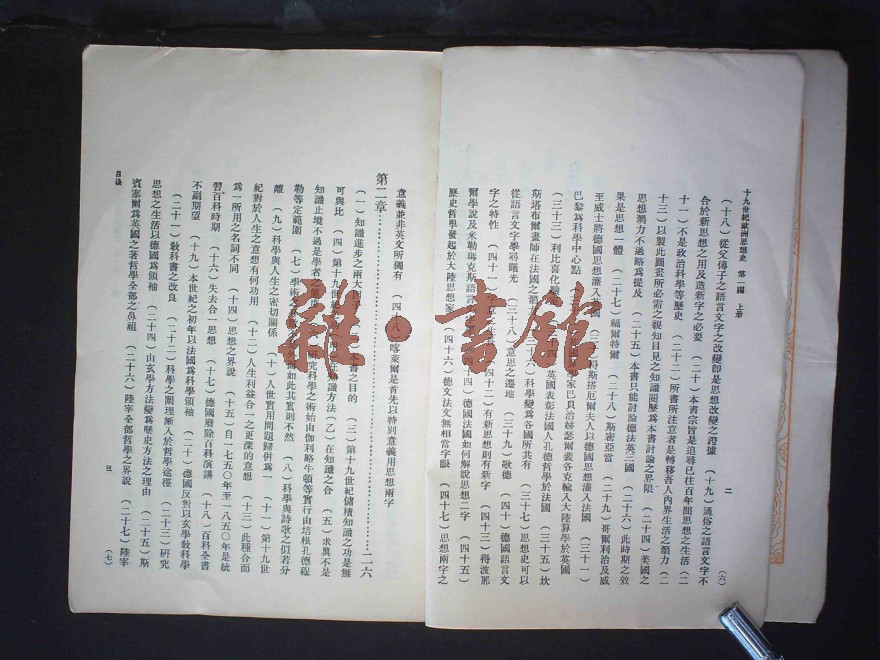 十九世紀歐洲思想史 第一編 上册
二
(六)
(十八)從父傳子之語言文字之改變卽是思想改變之證據 (十九)通俗之語言文字不
合於新思想之用及造新字之必要 (二十)本書宗旨是追尋已往百年間思想之生活(二
十一)不是政治科學等歷史 (二十二)所書所注意者是轉移吾人內界生活之潛力(二
十三)以製此圖畫所必需之親知目見之知識閱歷爲本書討論之界限 (二十四)美國之
思想潛力不過略爲提及 (二十五)本書只能討論德法英三國 (二十六)此時期之效
果是思想一體 (二十七)福爾特爾 (二十八)斯密亞當 (二十九)哥爾利治及威
至威士將德國思想灌入英國 得斯塔厄爾夫人以德國思想灌入法國 (三十一)
巴黎爲科學中心點 家巴貝治赫瑟爾裴各克輸入大陸算學於英國
(三十三)利比喜化 英國表彰法國人孔德哲學於法國 (三十五)坎
斯塔布爾畫師在法國之潛 科學變爲各國所共有 (三十七)思想史可以
從語言文字學尋曙光 (三十八)意思之遷地 (三十九)歌德 (四十)德國語言文
字之特性 (四十一) (四十二)有新思想則有新字 (四十三)得波那
爾學說及米勒瑪克斯語言 (四十四)德國法國如何解說思想二字 (四十五)
歷史哲學發起於大陸思想家 (四十六)德文法文無相當字眼 (四十七)思想兩字之
意義並非英文所獨有 (四十八)喀萊爾是首先以特別意義用思想兩字
第二章……一二六
(一)知識進步之兩大因子 本書之目的 (三)第十九世紀儲積知識之功是無
可與比 (四)第十九世紀 知識方法(乙)在知識之合 (五)求眞不是
知識止境不過是學者之 研究科學之術始由伽利略牛頓等實行由培根孔德臨
勒等定範圍 (七)學術之 外面如此其實則不然 (八)科學與詩歌之似若分
離 (九)科學與人生之密切關係 (十)人世實用問題歸併爲一 (十一)第十九世
紀對於人生之意想有何功用 (十二)人生利益合一之更深的意想 (十三)此種合而
爲一所用之名詞不同 (十四)思想之界說 (十五)自一七五〇年至一八五〇年是統
習百科時期 (十六)失去合一思想 (十七)德國廢除百科演講 (十八)百科全書
不副期望 (十九)本世紀之初年以法國爲科學領袖 (二十)德國反對以玄學敎科學
(二十一)敎科書之改良 (二十二)科學之闡理漸入於哲學途徑 (二十三)硏究
思想之生活以德國爲領袖 (二十四)由玄學方法變爲歷史方法之理由 (二十五)斯
賓塞爾爲英國之著哲學全部之鼻祖 (二十六)陸宰全部哲學之界說 (二十七)陸宰
目錄
三
(七)
雜·書館